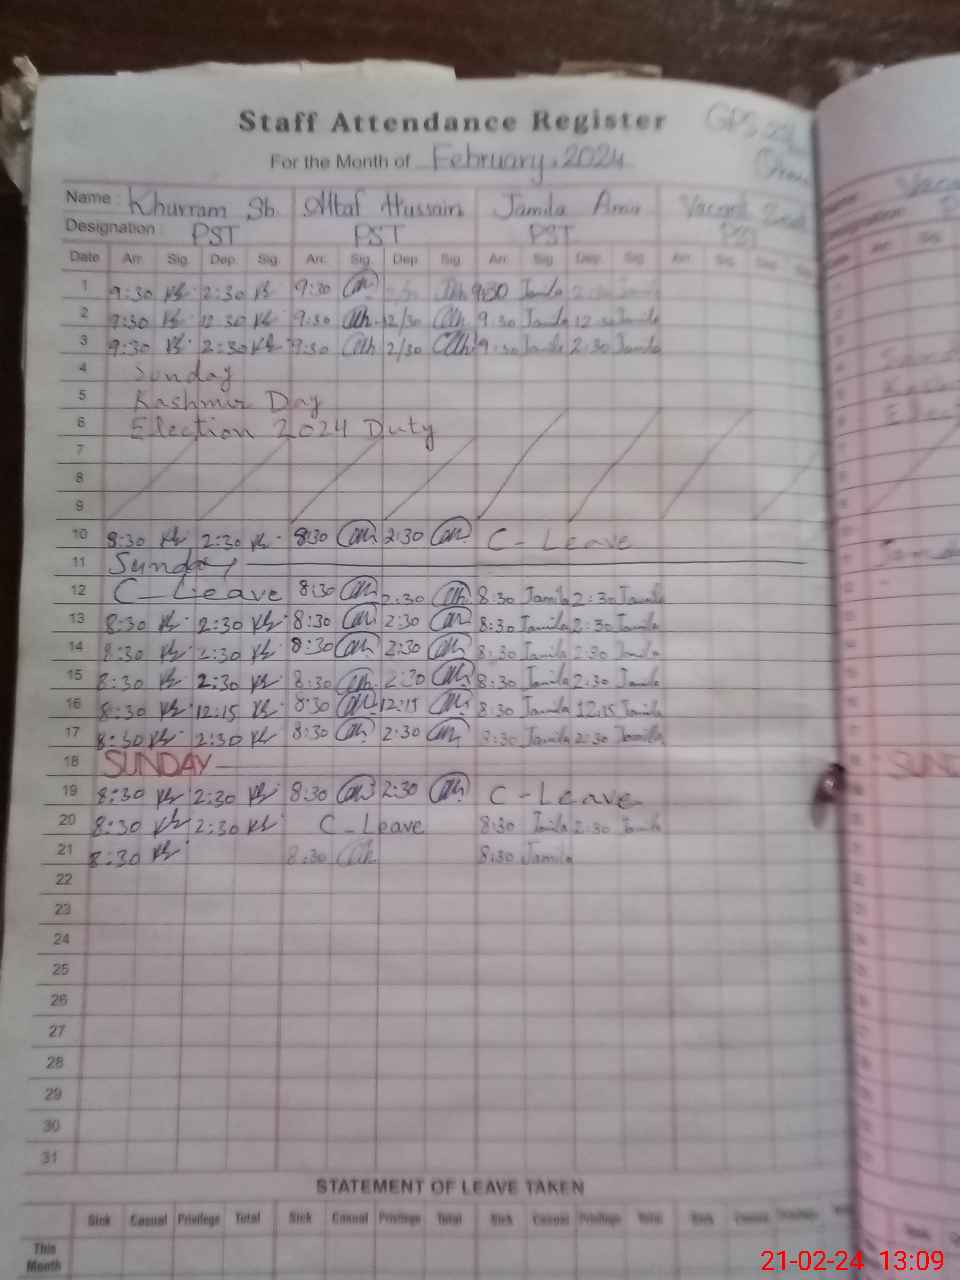 Staff Attendance Register GPS
For the Month of February, 2024
Name : Khurram Sh. Altaf Hussain Jamila Amir Vacant
Designation : PST PST PST PST
Date Arr. Sig. Dep. Sig. Arr. Sig. Dep. Sig. Arr. Sig. Dep. Sig. Arr. Sig.
1 9:30 2:30 9:30 9:30 Jamila
2 9:30 12:30 9:30 12/30 9:30 Jamila 12:30 Jamila
3 9:30 2:30 9:30 2/30 9:30 Jamila 2:30 Jamila
4 Sunday
5 Kashmir Day
6 Election 2024 Duty
7
8
9
10 8:30 2:30 8:30 2:30 C-Leave
11 Sunday
12 C-Leave 8:30 2:30 8:30 Jamila 2:30 Jamila
13 8:30 2:30 8:30 2:30 8:30 Jamila 2:30 Jamila
14 8:30 2:30 8:30 2:30 8:30 Jamila 2:30 Jamila
15 8:30 2:30 8:30 2:30 8:30 Jamila 2:30 Jamila
16 8:30 12:15 8:30 12:15 8:30 Jamila 12:15 Jamila
17 8:30 2:30 8:30 2:30 8:30 Jamila 2:30 Jamila
18 SUNDAY SUND
19 8:30 2:30 8:30 2:30 C-Leave
20 8:30 2:30 C-Leave 8:30 Jamila 2:30 Jamila
21 8:30 8:30 8:30 Jamila
22
23
24
25
26
27
28
29
30
31
STATEMENT OF LEAVE TAKEN
Sick Casual Privilege Total Sick Casual Privilege Total Sick Casual Privilege Total Sick Casual
This
Month
21-02-24 13:09